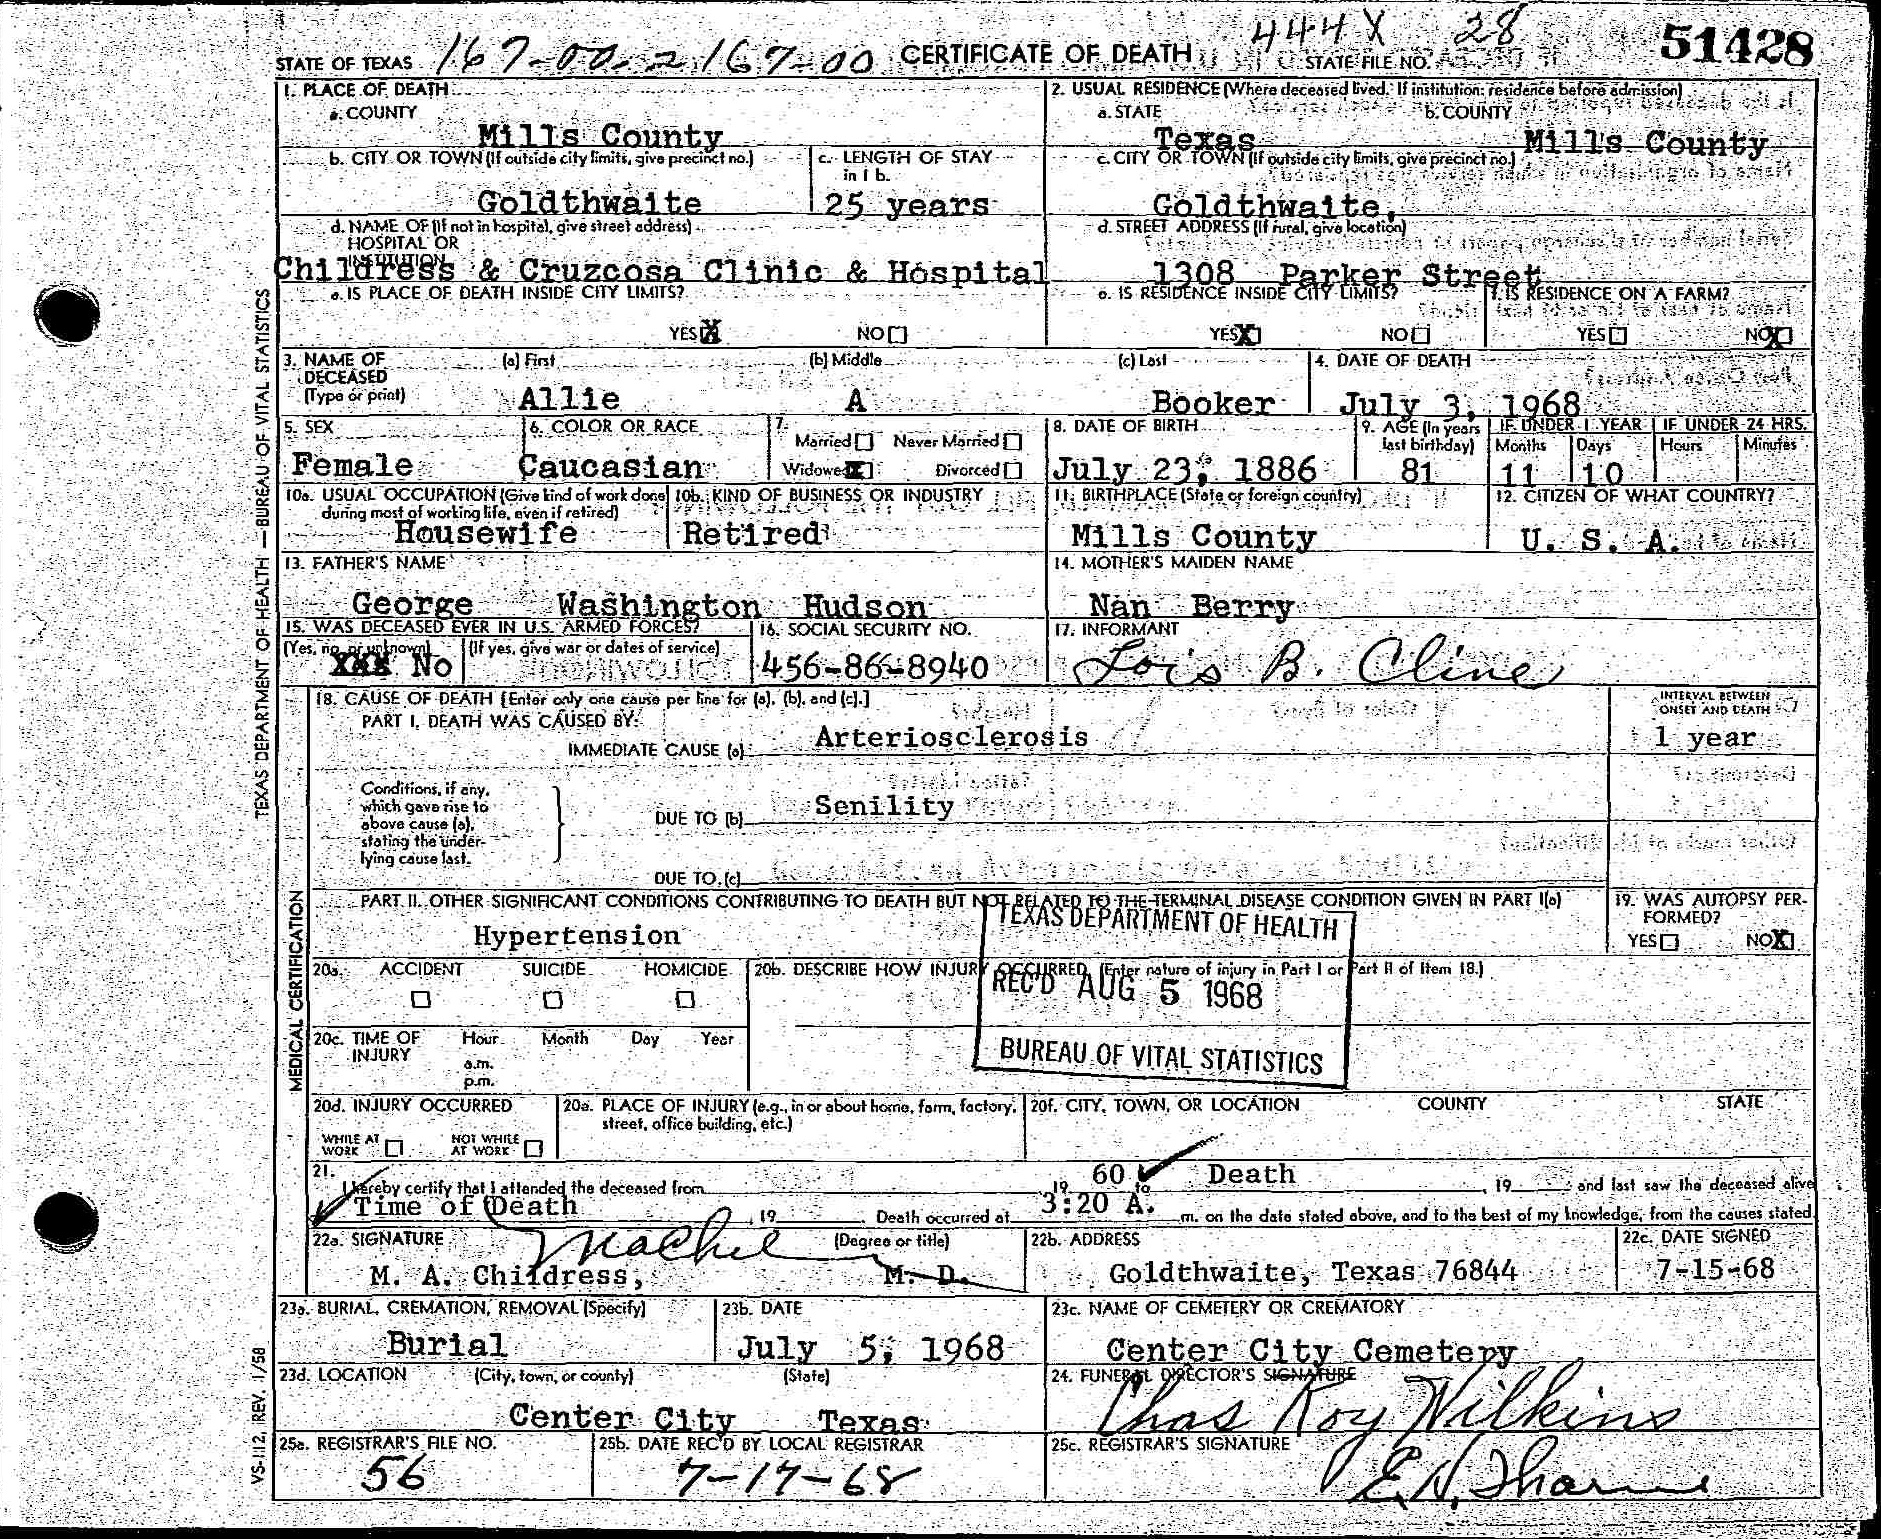 STATE OF TEXAS 167-00-2167-00 CERTIFICATE OF DEATH 444X 28 STATE FILE NO. 51428
1. PLACE OF DEATH
a. COUNTY
Mills County
2. USUAL RESIDENCE (Where deceased lived. If institution: residence before admission)
a. STATE b. COUNTY
Texas Mills County
b. CITY OR TOWN (If outside city limits, give precinct no.)
Goldthwaite
c. LENGTH OF STAY in 1 b.
25 years
c. CITY OR TOWN (If outside city limits, give precinct no.)
Goldthwaite,
d. NAME OF (If not in hospital, give street address)
HOSPITAL OR
INSTITUTION
Childress & Cruzcosa Clinic & Hospital
d. STREET ADDRESS (If rural, give location)
1308 Parker Street
e. IS PLACE OF DEATH INSIDE CITY LIMITS?
YES X NO
e. IS RESIDENCE INSIDE CITY LIMITS?
YES X NO
f. IS RESIDENCE ON A FARM?
YES NO X
3. NAME OF DECEASED (Type or print)
(a) First (b) Middle (c) Last
Allie A Booker
4. DATE OF DEATH
July 3, 1968
5. SEX
Female
6. COLOR OR RACE
Caucasian
7.
Married Never Married
Widowed X Divorced
8. DATE OF BIRTH
July 23, 1886
9. AGE (In years last birthday)
81
IF UNDER 1 YEAR
Months Days
11 10
IF UNDER 24 HRS.
Hours Minutes
10a. USUAL OCCUPATION (Give kind of work done during most of working life, even if retired)
Housewife
10b. KIND OF BUSINESS OR INDUSTRY
Retired
11. BIRTHPLACE (State or foreign country)
Mills County
12. CITIZEN OF WHAT COUNTRY?
U. S. A.
13. FATHER'S NAME
George Washington Hudson
14. MOTHER'S MAIDEN NAME
Nan Berry
15. WAS DECEASED EVER IN U.S. ARMED FORCES?
(Yes, no, or unknown) (If yes, give war or dates of service)
XXX No
16. SOCIAL SECURITY NO.
456-86-8940
17. INFORMANT
Lois B. Cline
18. CAUSE OF DEATH [Enter only one cause per line for (a), (b), and (c).]
PART I. DEATH WAS CAUSED BY:
IMMEDIATE CAUSE (a) Arteriosclerosis
INTERVAL BETWEEN ONSET AND DEATH
1 year
Conditions, if any, which gave rise to above cause (a), stating the underlying cause last.
DUE TO (b) Senility
DUE TO (c)
PART II. OTHER SIGNIFICANT CONDITIONS CONTRIBUTING TO DEATH BUT NOT RELATED TO THE TERMINAL DISEASE CONDITION GIVEN IN PART I(a)
Hypertension
19. WAS AUTOPSY PERFORMED?
YES NO X
TEXAS DEPARTMENT OF HEALTH
REC'D AUG 5 1968
BUREAU OF VITAL STATISTICS
20a. ACCIDENT SUICIDE HOMICIDE
20b. DESCRIBE HOW INJURY OCCURRED. (Enter nature of injury in Part I or Part II of Item 18.)
20c. TIME OF INJURY Hour Month Day Year
a.m.
p.m.
20d. INJURY OCCURRED
WHILE AT WORK NOT WHILE AT WORK
20e. PLACE OF INJURY (e.g., in or about home, farm, factory, street, office building, etc.)
20f. CITY, TOWN, OR LOCATION COUNTY STATE
21.
I hereby certify that I attended the deceased from 19 60 to Death, 19 and last saw the deceased alive
Time of Death, 19 . Death occurred at 3:20 A. m. on the date stated above, and to the best of my knowledge, from the causes stated.
22a. SIGNATURE (Degree or title)
M. A. Childress, M. D.
22b. ADDRESS
Goldthwaite, Texas 76844
22c. DATE SIGNED
7-15-68
23a. BURIAL, CREMATION, REMOVAL (Specify)
Burial
23b. DATE
July 5, 1968
23c. NAME OF CEMETERY OR CREMATORY
Center City Cemetery
23d. LOCATION (City, town, or county) (State)
Center City Texas
24. FUNERAL DIRECTOR'S SIGNATURE
Chas Roy Wilkins
25a. REGISTRAR'S FILE NO.
56
25b. DATE REC'D BY LOCAL REGISTRAR
7-17-68
25c. REGISTRAR'S SIGNATURE
TEXAS DEPARTMENT OF HEALTH — BUREAU OF VITAL STATISTICS
MEDICAL CERTIFICATION
VS-112, REV. 1/58